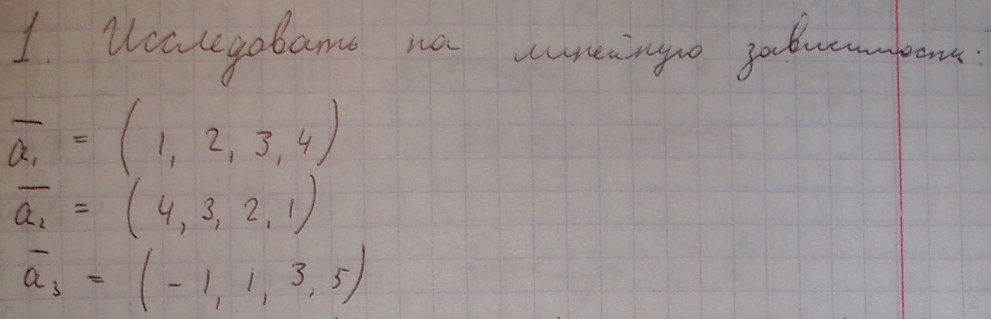 1. Исследовать на линейную зависимость:
a̅₁ = (1, 2, 3, 4)
a̅₂ = (4, 3, 2, 1)
a̅₃ = (-1, 1, 3, 5)